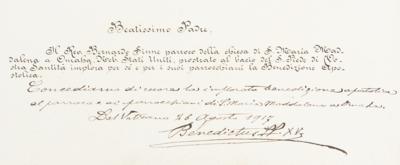 Beatissimo Padre,
Il Rev. Bernardo Sinne parroco della chiesa di S. Maria Mad-
dalena a Omaha, Neb. Stati Uniti, prostrato al bacio del S. Piede di Vo-
stra Santità implora per sè e per i suoi parrocchiani la Benedizione Apo-
stolica.
Concediamo di cuore la implorata benedizione apostolica
al parroco e ai parrocchiani di S. Maria Maddalena a Omaha.
Dal Vaticano 26 Agosto 1917
Benedictus PP. XV.